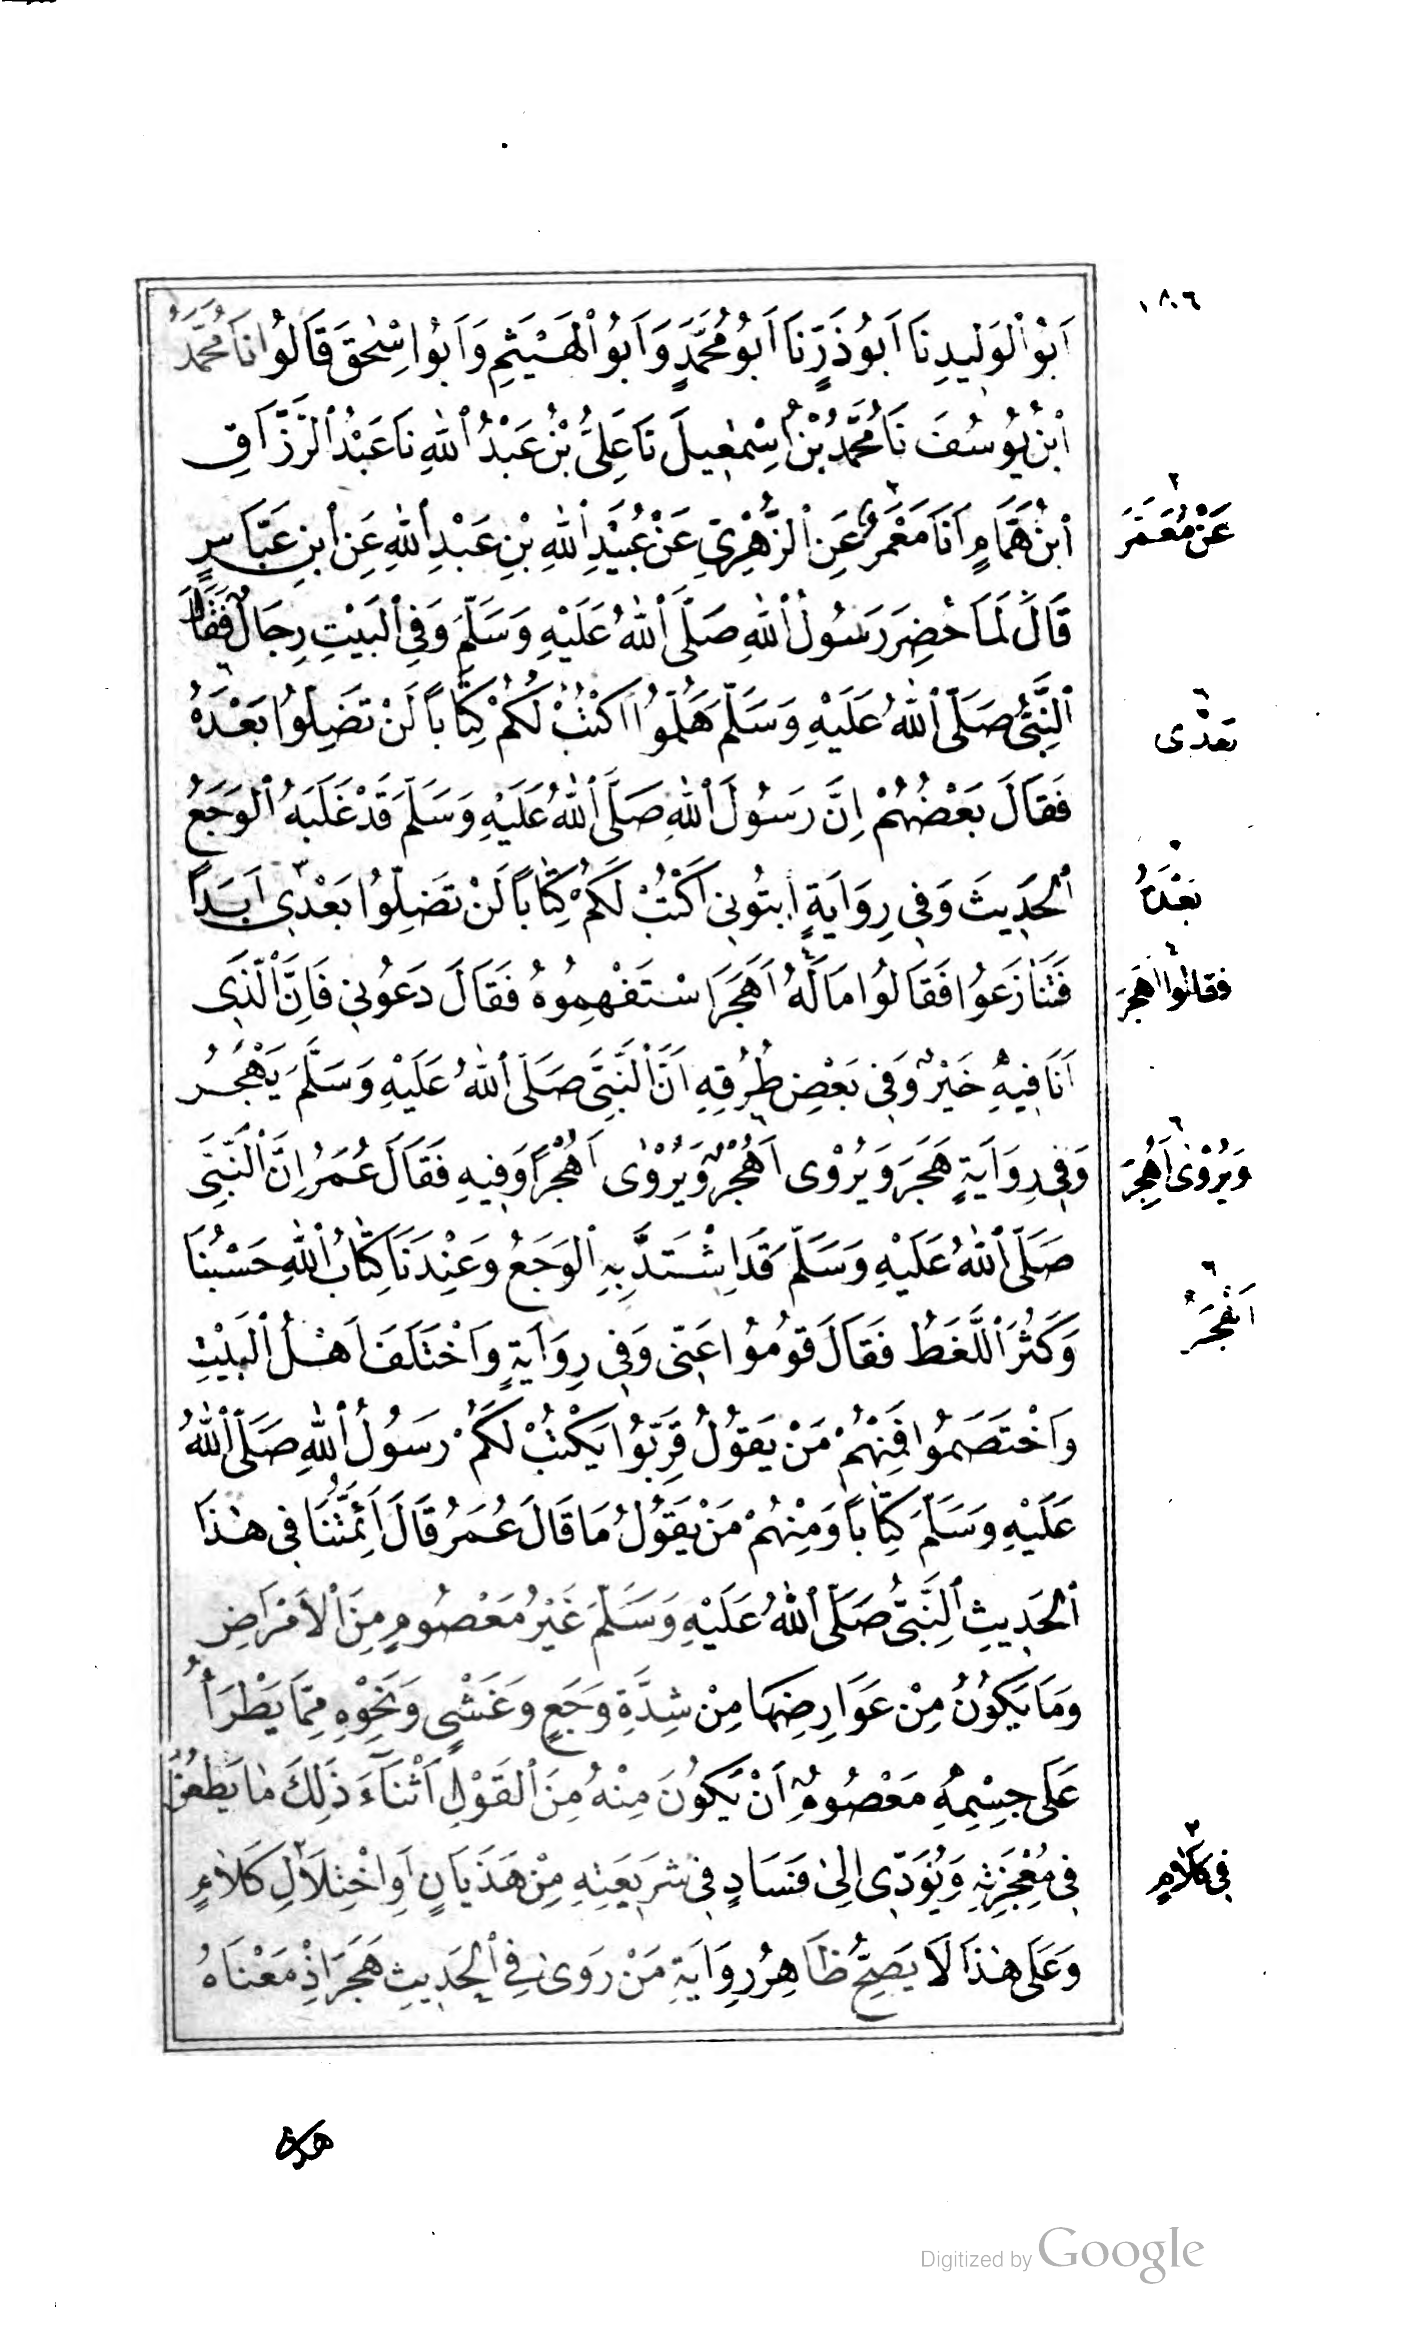 ١٨٠٦
اَبُو الْوَلِيدِ نَا اَبُو ذَرٍّ نَا اَبُو مُحَمَّدٍ وَاَبُو الْهَيْثَمِ وَاَبُو اِسْحٰقَ قَالُوا نَا مُحَمَّدُ
ابْنُ يُوسُفَ نَا مُحَمَّدُ بْنُ اِسْمٰعِيلَ نَا عَلِيُّ بْنُ عَبْدُ اللّٰهِ نَا عَبْدُ الرَّزَّاقِ
ابْنُ هَمَّامٍ اَنَا مَعْمَرٌ عَنِ الزُّهْرِيِّ عَنْ عُبَيْدِ اللّٰهِ بْنِ عَبْدِ اللّٰهِ عَنِ ابْنِ عَبَّاسٍ
عَنْ مُعَمَرَ
قَالَ لَمَّا حُضِرَ رَسُولُ اللّٰهِ صَلَّى اللّٰهُ عَلَيْهِ وَسَلَّمَ وَفِي الْبَيْتِ رِجَالٌ فَقَالَ
النَّبِيُّ صَلَّى اللّٰهُ عَلَيْهِ وَسَلَّمَ هَلُمُّوا اَكْتُبْ لَكُمْ كِتَاباً لَنْ تَضِلُّوا بَعْدَهُ
بَعْدِى
فَقَالَ بَعْضُهُمْ اِنَّ رَسُولَ اللّٰهِ صَلَّى اللّٰهُ عَلَيْهِ وَسَلَّمَ قَدْ غَلَبَهُ الْوَجَعُ
الْحَدِيثَ وَفِي رِوَايَةٍ اِيتُونِي اَكْتُبْ لَكُمْ كِتَاباً لَنْ تَضِلُّوا بَعْدِى اَبَداً
بَعْدَهُ
فَتَنَازَعُوا فَقَالُوا مَالَهُ اَهَجَرَ اسْتَفْهِمُوهُ فَقَالَ دَعُونِي فَاِنَّ الَّذِى
فقالوا اهَجَرَ
اَنَا فِيهِ خَيْرٌ وَفِي بَعْضِ طُرُقِهِ اَنَّ النَّبِيَّ صَلَّى اللّٰهُ عَلَيْهِ وَسَلَّمَ يَهْجُرُ
وَفِي رِوَايَةٍ هَجَرَ وَيُرْوٰى اَهُجْرٌ وَيُرْوٰى اَهُجْرًا وَفِيهِ فَقَالَ عُمَرُ اِنَّ النَّبِيَّ
وَيُرْوٰى اَهُجِرَ
صَلَّى اللّٰهُ عَلَيْهِ وَسَلَّمَ قَدِ اشْتَدَّ بِهِ الْوَجَعُ وَعِنْدَنَا كِتَابُ اللّٰهِ حَسْبُنَا
وَكَثُرَ اللَّغَطُ فَقَالَ قُومُوا عَنِّي وَفِي رِوَايَةٍ وَاخْتَلَفَ اَهْلُ الْبَيْتِ
وَاخْتَصَمُوا فَمِنْهُمْ مَنْ يَقُولُ قَرِّبُوا يَكْتُبْ لَكُمْ رَسُولُ اللّٰهِ صَلَّى اللّٰهُ
عَلَيْهِ وَسَلَّمَ كِتَاباً وَمِنْهُمْ مَنْ يَقُولُ مَا قَالَ عُمَرُ قَالَ اَئِمَّتُنَا فِي هٰذَا
الْحَدِيثِ النَّبِيُّ صَلَّى اللّٰهُ عَلَيْهِ وَسَلَّمَ غَيْرُ مَعْصُومٍ مِنَ الْاَمْرَاضِ
وَمَا يَكُونُ مِنْ عَوَارِضِهَا مِنْ شِدَّةِ وَجَعٍ وَغَشْيٍ وَنَحْوِهِ مِمَّا يَطْرَأُ
عَلٰى جِسْمِهِ مَعْصُومٌ اَنْ يَكُونَ مِنْهُ مِنَ الْقَوْلِ اَثْنَآءَ ذٰلِكَ مَا يَطْعُنُ
فِي مُعْجِزَتِهِ وَيُؤَدِّى اِلٰى فَسَادٍ فِي شَرِيعَتِهِ مِنْ هَذَيَانٍ اَوِ اخْتِلَالِ كَلَامٍ
فِي كَلَامٍ
وَعَلٰى هٰذَا لَا يَصِحُّ ظَاهِرُ رِوَايَةِ مَنْ رَوٰى فِي الْحَدِيثِ هَجَرَ اِذْ مَعْنَاهُ
Digitized by Google